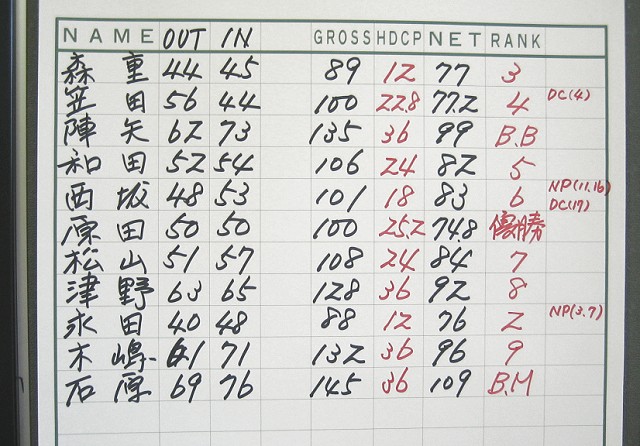 NAME OUT IN GROSS HDCP NET RANK
森重 44 45 89 12 77 3
笠田 56 44 100 22.8 77.2 4 DC(4)
陣矢 62 73 135 36 99 B.B
和田 52 54 106 24 82 5
西坂 48 53 101 18 83 6 NP(11.16) DC(17)
原田 50 50 100 25.2 74.8 優勝
松山 51 57 108 24 84 7
津野 63 65 128 36 92 8
永田 40 48 88 12 76 2 NP(3.7)
木嶋 61 71 132 36 96 9
石原 69 76 145 36 109 B.M